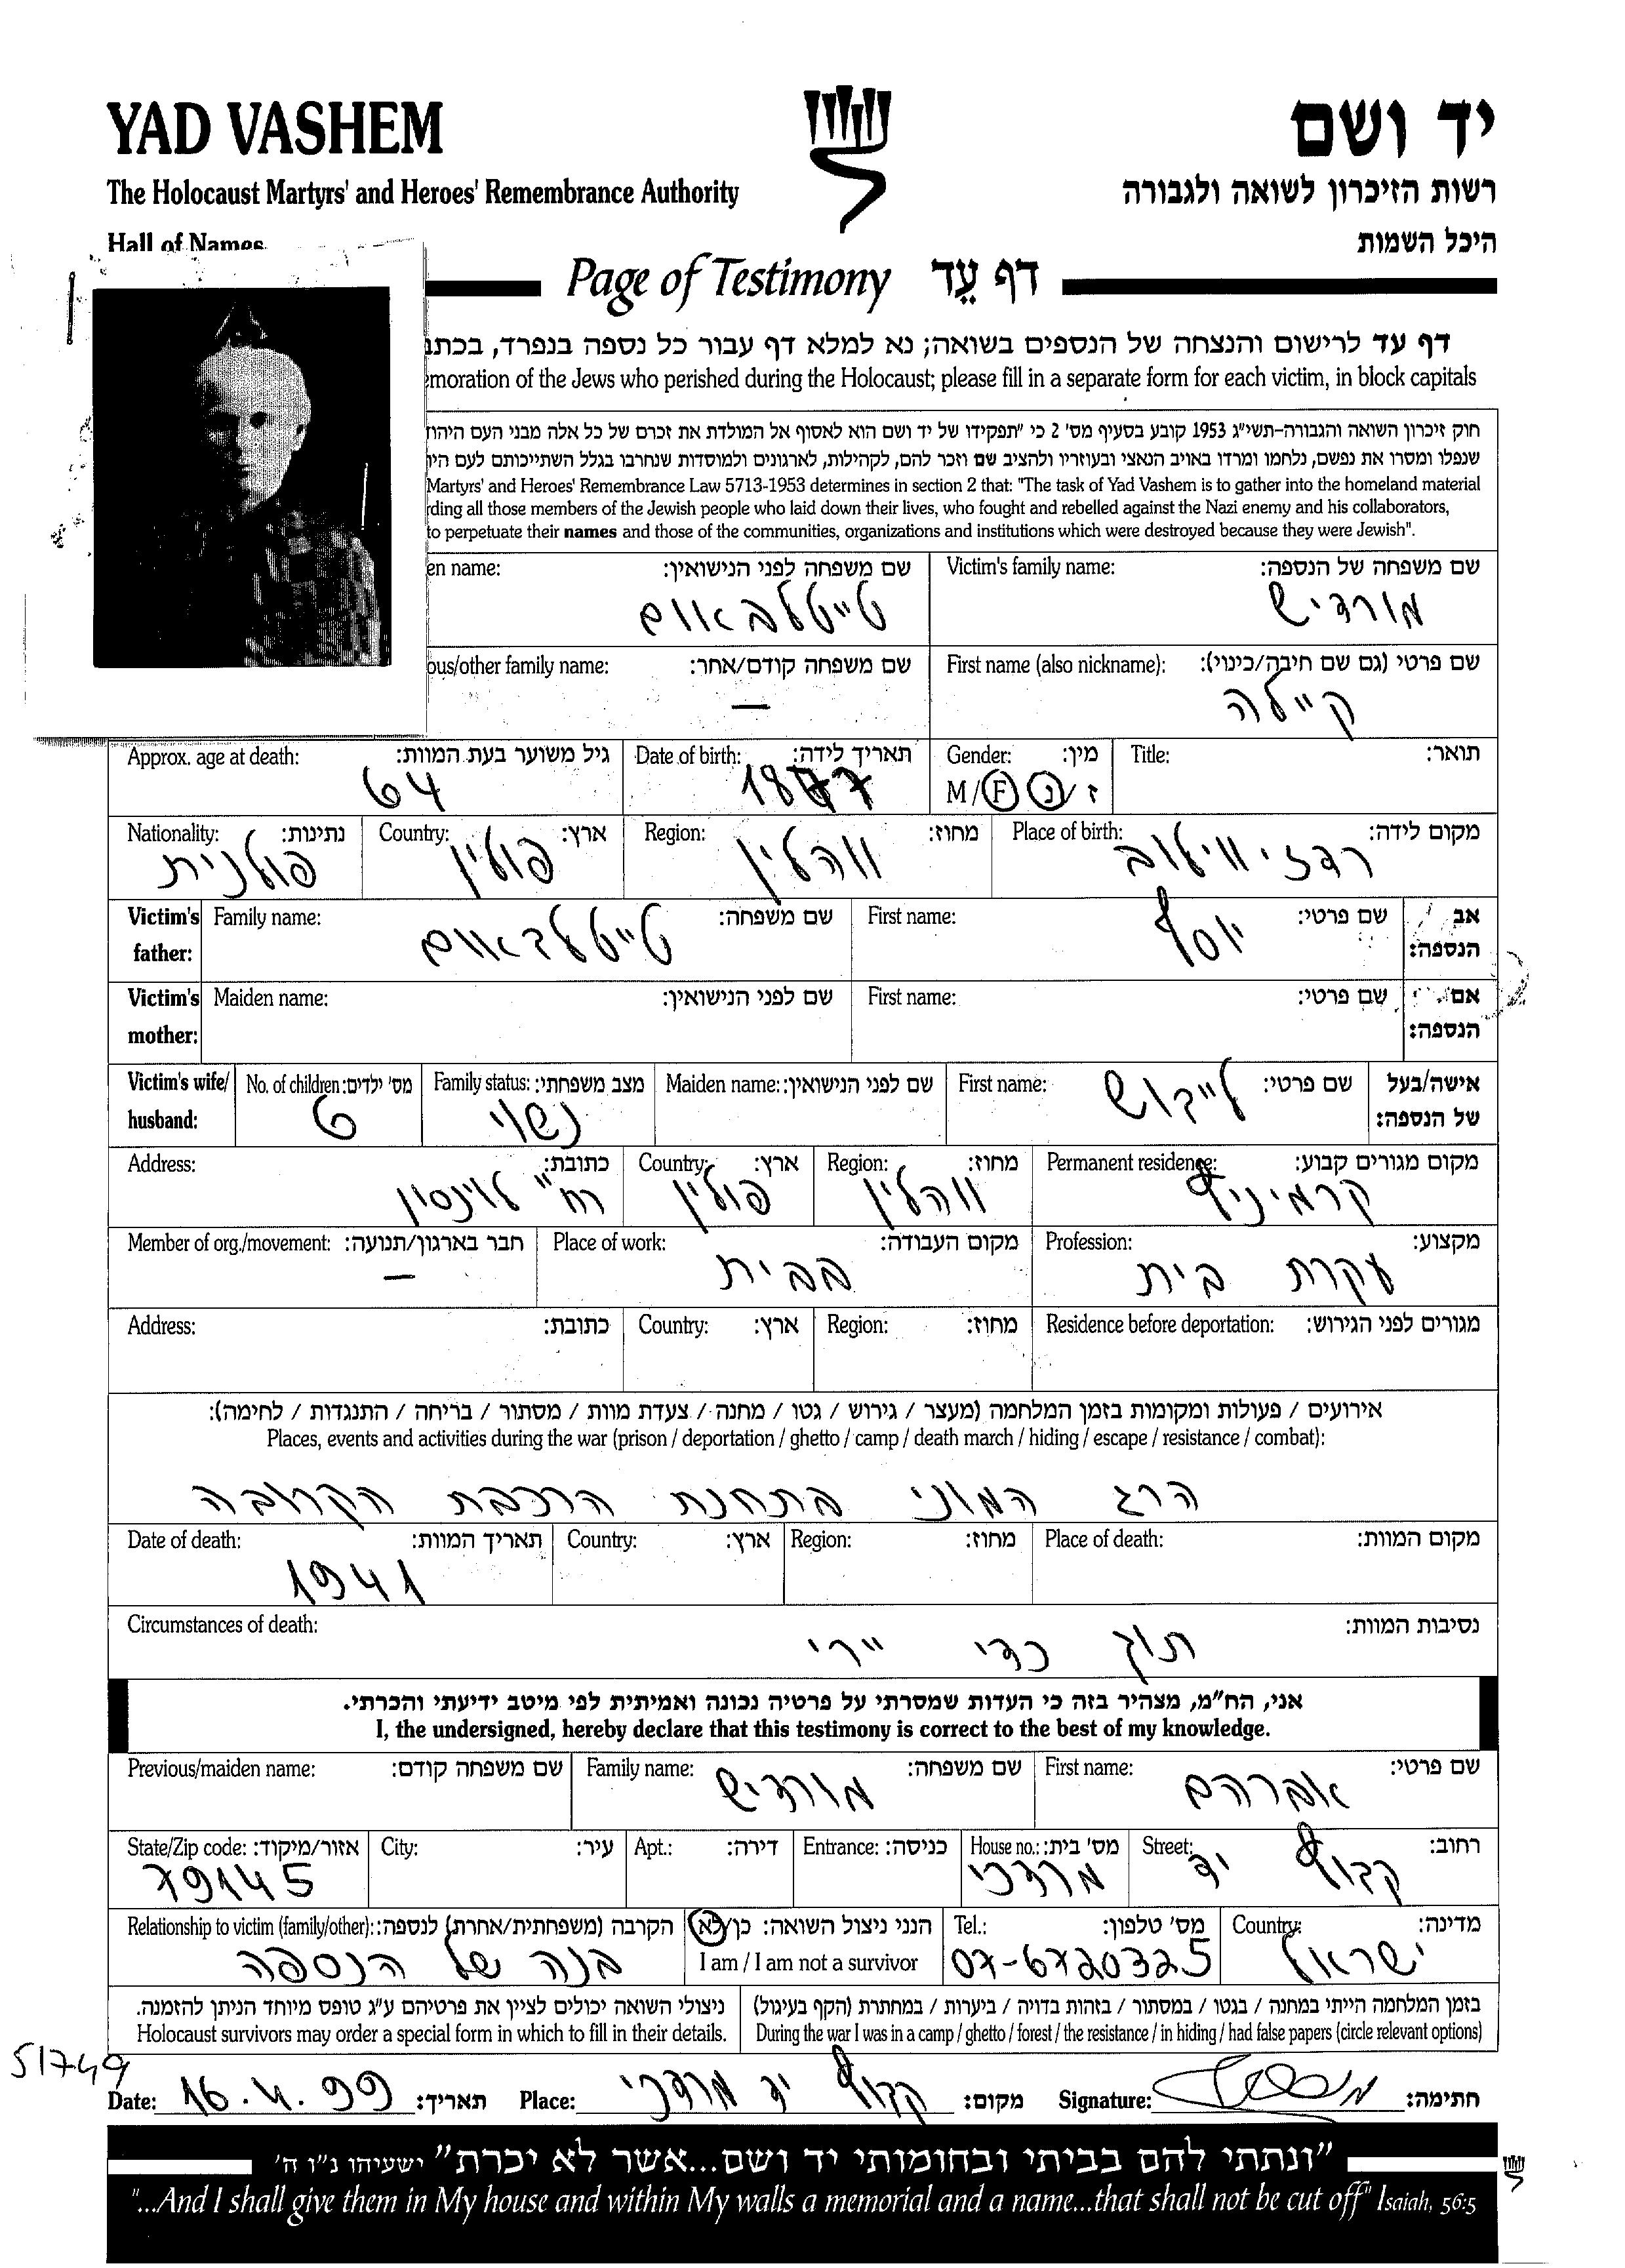 YAD VASHEM
יד ושם
The Holocaust Martyrs' and Heroes' Remembrance Authority
רשות הזיכרון לשואה ולגבורה
Hall of Names
היכל השמות
Page of Testimony דף עֵד
דף עד לרישום והנצחה של הנספים בשואה; נא למלא דף עבור כל נספה בנפרד, בכתב
moration of the Jews who perished during the Holocaust; please fill in a separate form for each victim, in block capitals
חוק זיכרון השואה והגבורה-תשי״ג 1953 קובע בסעיף מס' 2 כי ״תפקידו של יד ושם הוא לאסוף אל המולדת את זכרם של כל אלה מבני העם היהוד
שנפלו ומסרו את נפשם, נלחמו ומרדו באויב הנאצי ובעוזריו ולהציב שם וזכר להם, לקהילות, לארגונים ולמוסדות שנחרבו בגלל השתייכותם לעם היו
Martyrs' and Heroes' Remembrance Law 5713-1953 determines in section 2 that: "The task of Yad Vashem is to gather into the homeland material
rding all those members of the Jewish people who laid down their lives, who fought and rebelled against the Nazi enemy and his collaborators,
to perpetuate their names and those of the communities, organizations and institutions which were destroyed because they were Jewish".
שם משפחה של הנספה: Victim's family name: שם משפחה לפני הנישואין: en name:
מורדיש טייטלבאום
שם פרטי (גם שם חיבה/כינוי): First name (also nickname): שם משפחה קודם/אחר: ous/other family name:
קיילה —
תואר: Title: מין: Gender: תאריך לידה: Date of birth: גיל משוער בעת המוות: Approx. age at death:
ז/נ M/F 1877 64
מקום לידה: Place of birth: מחוז: Region: ארץ: Country: נתינות: Nationality:
רדזיווילוב ווהלין פולין פולנית
אב הנספה: שם פרטי: First name: שם משפחה: Family name: Victim's father:
יוסף טייטלבאום
אם הנספה: שם פרטי: First name: שם לפני הנישואין: Maiden name: Victim's mother:
אישה/בעל של הנספה: שם פרטי: First name: שם לפני הנישואין: Maiden name: מצב משפחתי: Family status: מס' ילדים: No. of children: Victim's wife/ husband:
לייבוש נשוי 6
מקום מגורים קבוע: Permanent residence: מחוז: Region: ארץ: Country: כתובת: Address:
קרמיניף ווהלין פולין רח'' לוינסון
מקצוע: Profession: מקום העבודה: Place of work: חבר בארגון/תנועה: Member of org./movement:
עקרת בית בבית —
מגורים לפני הגירוש: Residence before deportation: מחוז: Region: ארץ: Country: כתובת: Address:
אירועים / פעולות ומקומות בזמן המלחמה (מעצר / גירוש / גטו / מחנה / צעדת מוות / מסתור / בריחה / התנגדות / לחימה):
Places, events and activities during the war (prison / deportation / ghetto / camp / death march / hiding / escape / resistance / combat):
הרג המוני בתחנת הרכבת הקרובה
מקום המוות: Place of death: מחוז: Region: ארץ: Country: תאריך המוות: Date of death:
1941
נסיבות המוות: Circumstances of death:
תוך כדי ירי
אני, הח״מ, מצהיר בזה כי העדות שמסרתי על פרטיה נכונה ואמיתית לפי מיטב ידיעתי והכרתי.
I, the undersigned, hereby declare that this testimony is correct to the best of my knowledge.
שם פרטי: First name: שם משפחה: Family name: שם משפחה קודם: Previous/maiden name:
אברהם מורדיש
רחוב: Street: מס' בית: House no.: כניסה: Entrance: דירה: Apt.: עיר: City: אזור/מיקוד: State/Zip code:
יד מרדכי 79145
מדינה: Country: מס' טלפון: Tel.: הנני ניצול השואה: כן/לא הקרבה (משפחתית/אחרת) לנספה: Relationship to victim (family/other):
ישראל 07-6720325 I am / I am not a survivor בנה של הנספה
בזמן המלחמה הייתי במחנה / בגטו / במסתור / בזהות בדויה / ביערות / במחתרת (הקף בעיגול) ניצולי השואה יכולים לציין את פרטיהם ע״ג טופס מיוחד הניתן להזמנה.
During the war I was in a camp / ghetto / forest / the resistance / in hiding / had false papers (circle relevant options) Holocaust survivors may order a special form in which to fill in their details.
51749
חתימה: Signature: מקום: יד מרדכי Place: תאריך: 16.4.99 Date:
״ונתתי להם בביתי ובחומותי יד ושם...אשר לא יכרת״ ישעיהו נ״ו ה'
"...And I shall give them in My house and within My walls a memorial and a name...that shall not be cut off" Isaiah, 56:5